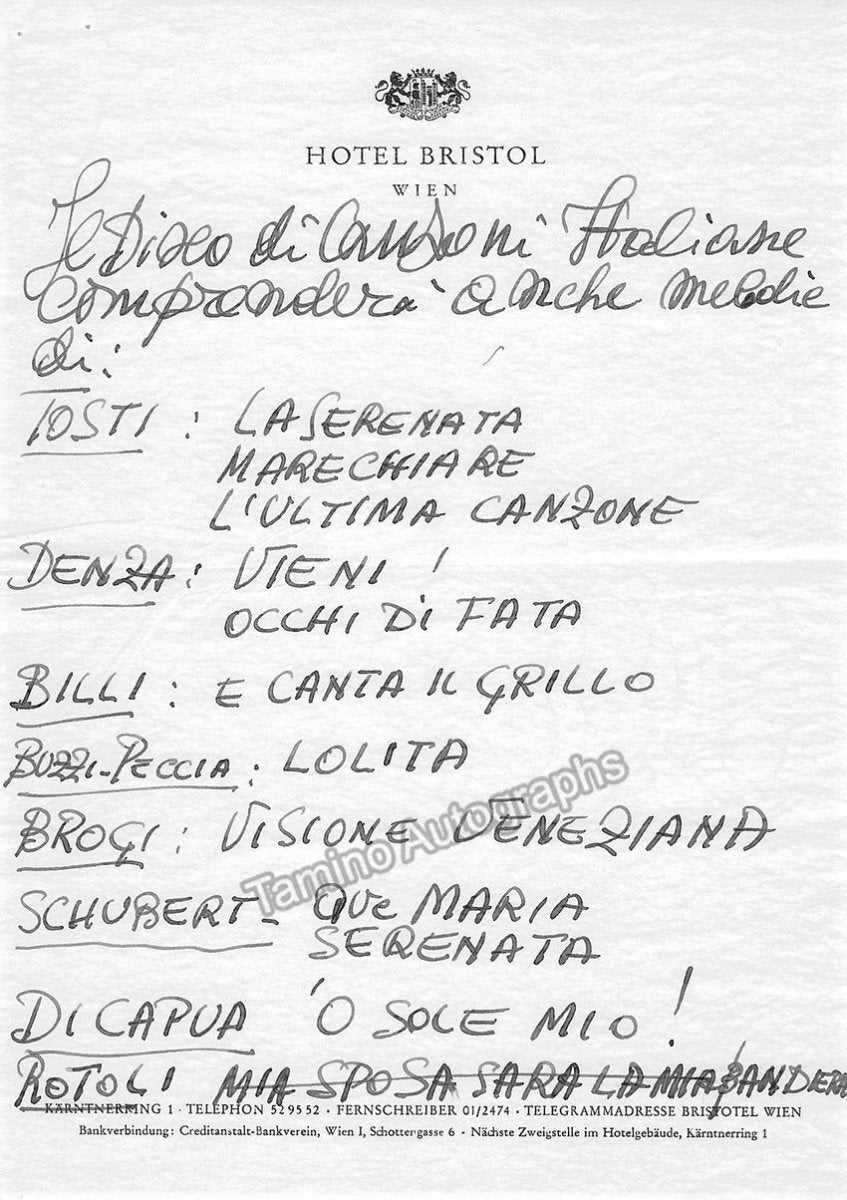 HOTEL BRISTOL
WIEN
Il Disco di Canzoni Italiane
comprenderà anche melodie
di:
TOSTI : LA SERENATA
MARECHIARE
L'ULTIMA CANZONE
DENZA: VIENI !
OCCHI DI FATA
BILLI : E CANTA IL GRILLO
BUZZI-PECCIA : LOLITA
BROGI : VISIONE VENEZIANA
Tamino Autographs
SCHUBERT - AVE MARIA
SERENATA
DI CAPUA 'O SOLE MIO !
ROTOLI MIA SPOSA SARA LA MIA BANDIERA
KÄRNTNERRING 1 · TELEPHON 52 95 52 · FERNSCHREIBER 01/2474 · TELEGRAMMADRESSE BRISTOTEL WIEN
Bankverbindung: Creditanstalt-Bankverein, Wien I, Schottengasse 6 - Nächste Zweigstelle im Hotelgebäude, Kärntnerring 1